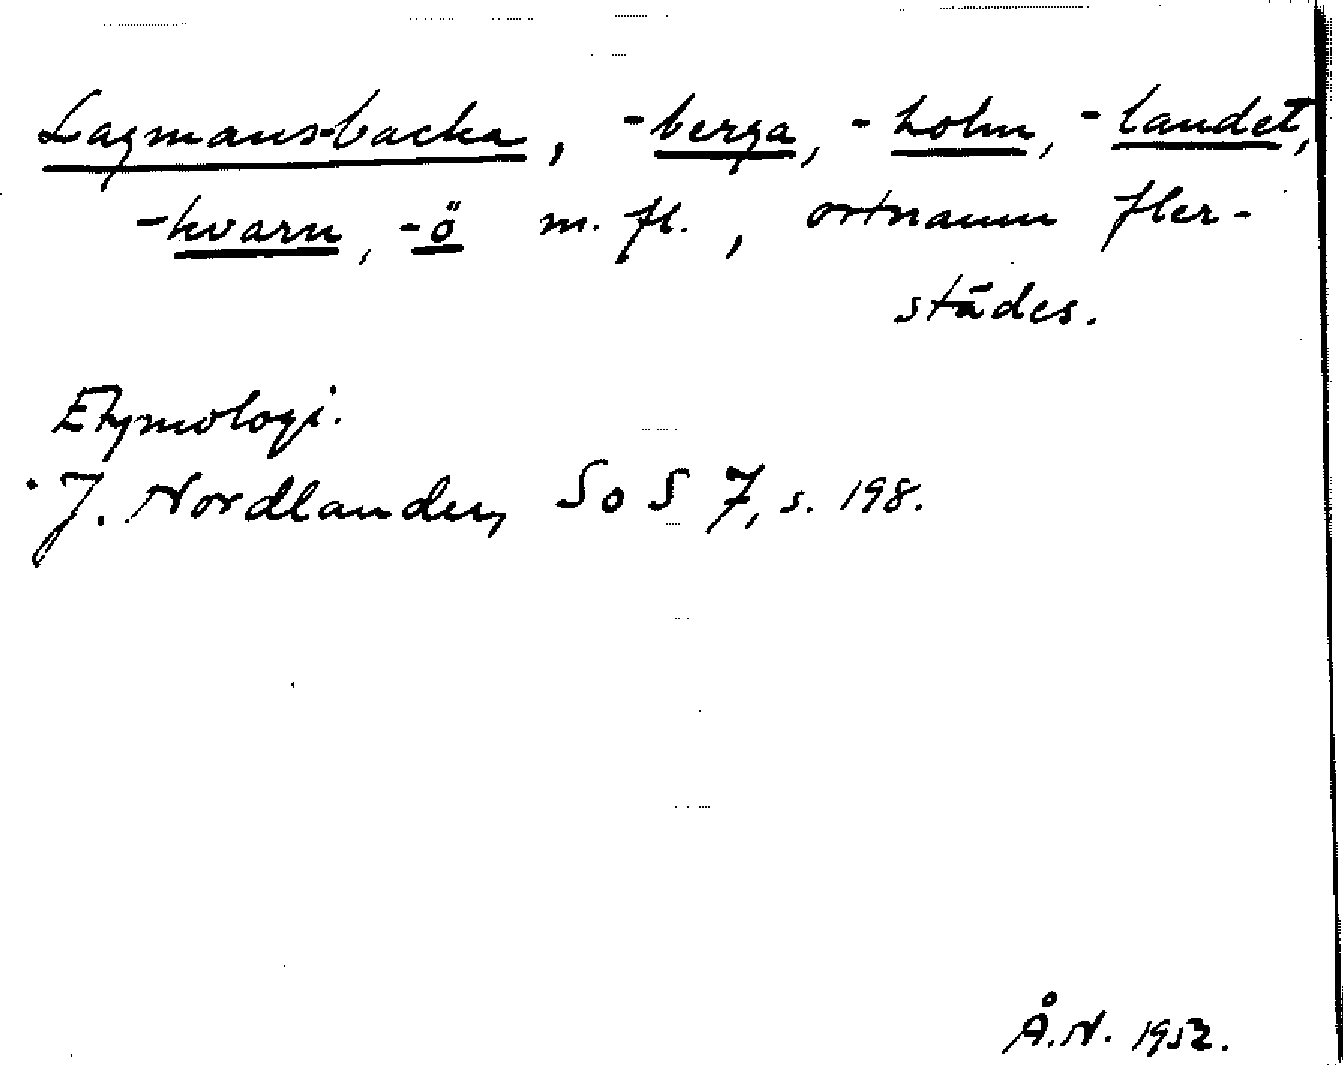 Lagmansbacka, -berga, -holm, -landet,
-kvarn, -ö m. fl., ortnamn fler-
städes.
Etymologi.
J. Nordlander, SoS 7, s. 198.
Å.N. 1952.